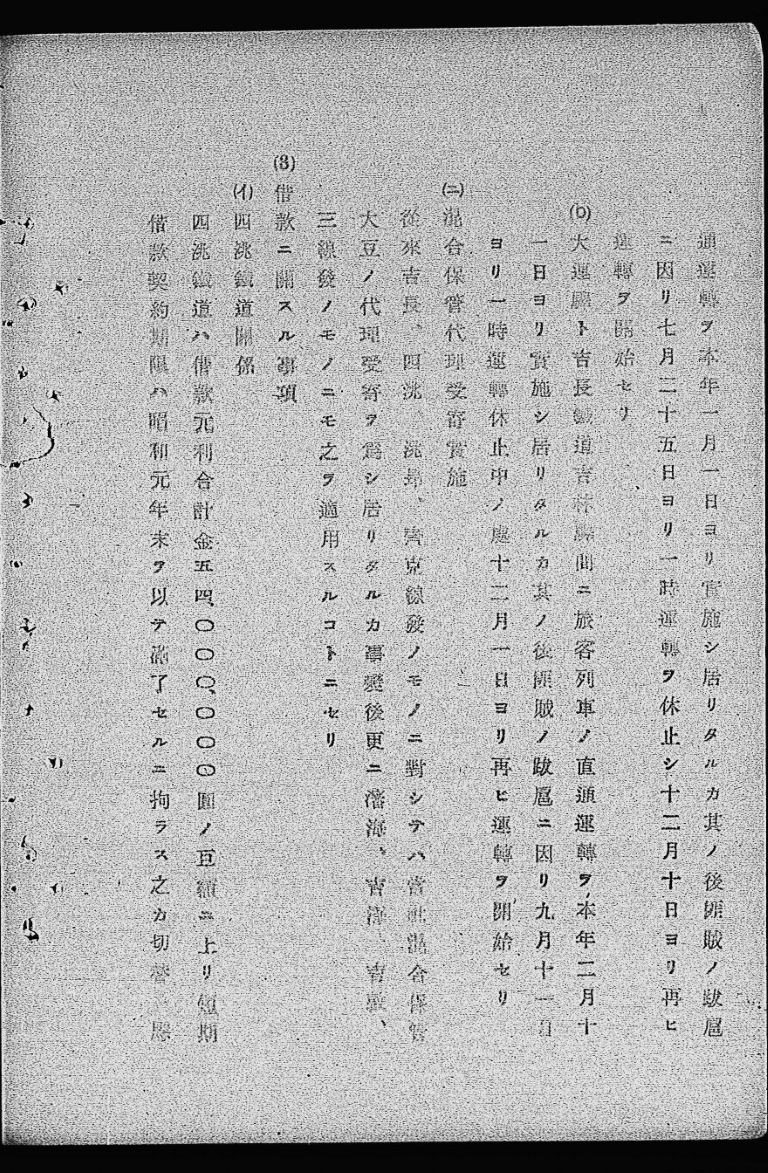 通運轉ヲ本年一月一日ヨリ實施シ居リタルカ其ノ後匪賊ノ跋扈
ニ因リ七月二十五日ヨリ一時運轉ヲ休止シ十二月十日ヨリ再ヒ
運轉ヲ開始セリ
(b)大連驛ト吉長鐵道吉林驛間ニ旅客列車ノ直通運轉ヲ本年二月十
一日ヨリ實施シ居リタルカ其ノ後匪賊ノ跋扈ニ因リ九月十一日
ヨリ一時運轉休止中ノ處十二月一日ヨリ再ヒ運轉ヲ開始セリ
(ニ)混合保管代理受寄實施
從來吉長、四洮、洮昂、齊克線發ノモノニ對シテハ當社混合保管
大豆ノ代理受寄ヲ爲シ居リタルカ事變後更ニ瀋海、吉海、吉敦、
三線發ノモノニモ之ヲ適用スルコトニセリ
(3)借款ニ關スル事項
(イ)四洮鐵道關係
四洮鐵道ハ借款元利合計金五四、〇〇〇、〇〇〇圓ノ巨額ニ上リ短期
借款契約期限ハ昭和元年末ヲ以テ滿了セルニ拘ラス之カ切替ニ應